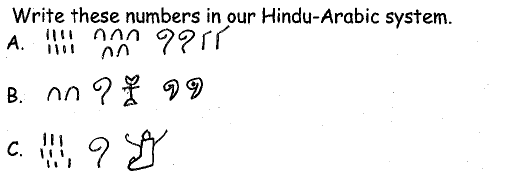 Write these numbers in our Hindu-Arabic system.
A.
B.
C.